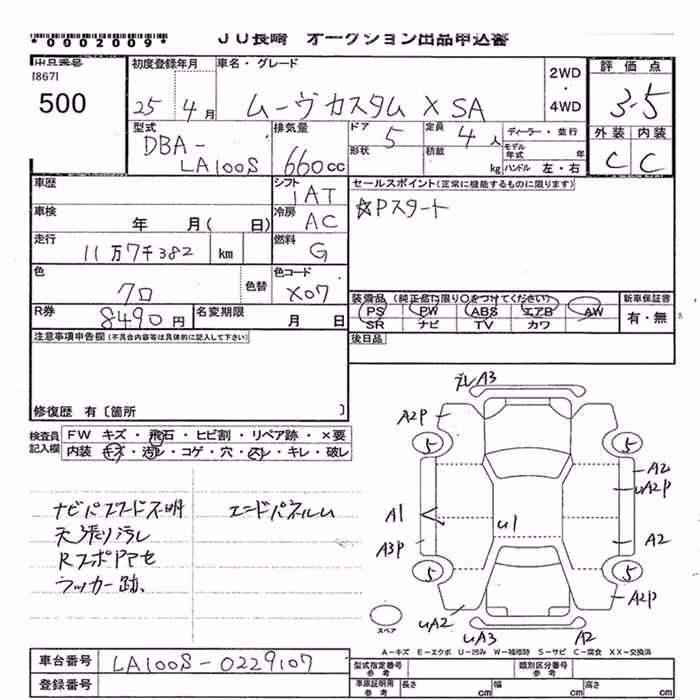 *0002009*
JU長崎 オークション出品申込書
出品番号
[867]
500
初度登録年月
25年 4月
車名・グレード
ムーヴカスタム X SA
2WD
・
4WD
評価点
3.5
外装 内装
C C
型式
DBA-
LA100S
排気量
660cc
ドア 5
形状
定員 4人
積載 kg
ディーラー・並行
モデル年式 年
ハンドル 左・右
車歴
シフト
IAT
車検 年 月( 日)
冷房
AC
走行
11万7千382 km
燃料
G
色
クロ
色替
色コード
X07
R券
8490円
名変期限 月 日
セールスポイント(正常に機能するものに限ります)
☆Pスタート
装備品 (純正品に限り○をつけてください)
PS PW ABS エアB AW
SR ナビ TV カワ
新車保証書
有・無
後日品
注意事項申告欄(不具合内容等は具体的に記入して下さい)
修復歴 有〔箇所 〕
検査員
記入欄
FW キズ・飛石・ヒビ割・リペア跡・×要
内装 キズ・汚レ・コゲ・穴・スレ・キレ・破レ
ナビパスワード不明
天張り汚レ
ステッカー跡、
エンドパネルム
A3
A2P
5
5
A2
uA2P
A1
u1
A3P
A2
5
5
A2P
uA2
uA3
A2
スペア
A-キズ E-エクボ U-凹み W-補修跡 S-サビ C-腐食 XX-交換済
車台番号
LA100S-0229107
登録番号
型式指定番号
参考
類別区分番号
参考
車庫証明用
参考
長さ cm 幅 cm 高さ cm